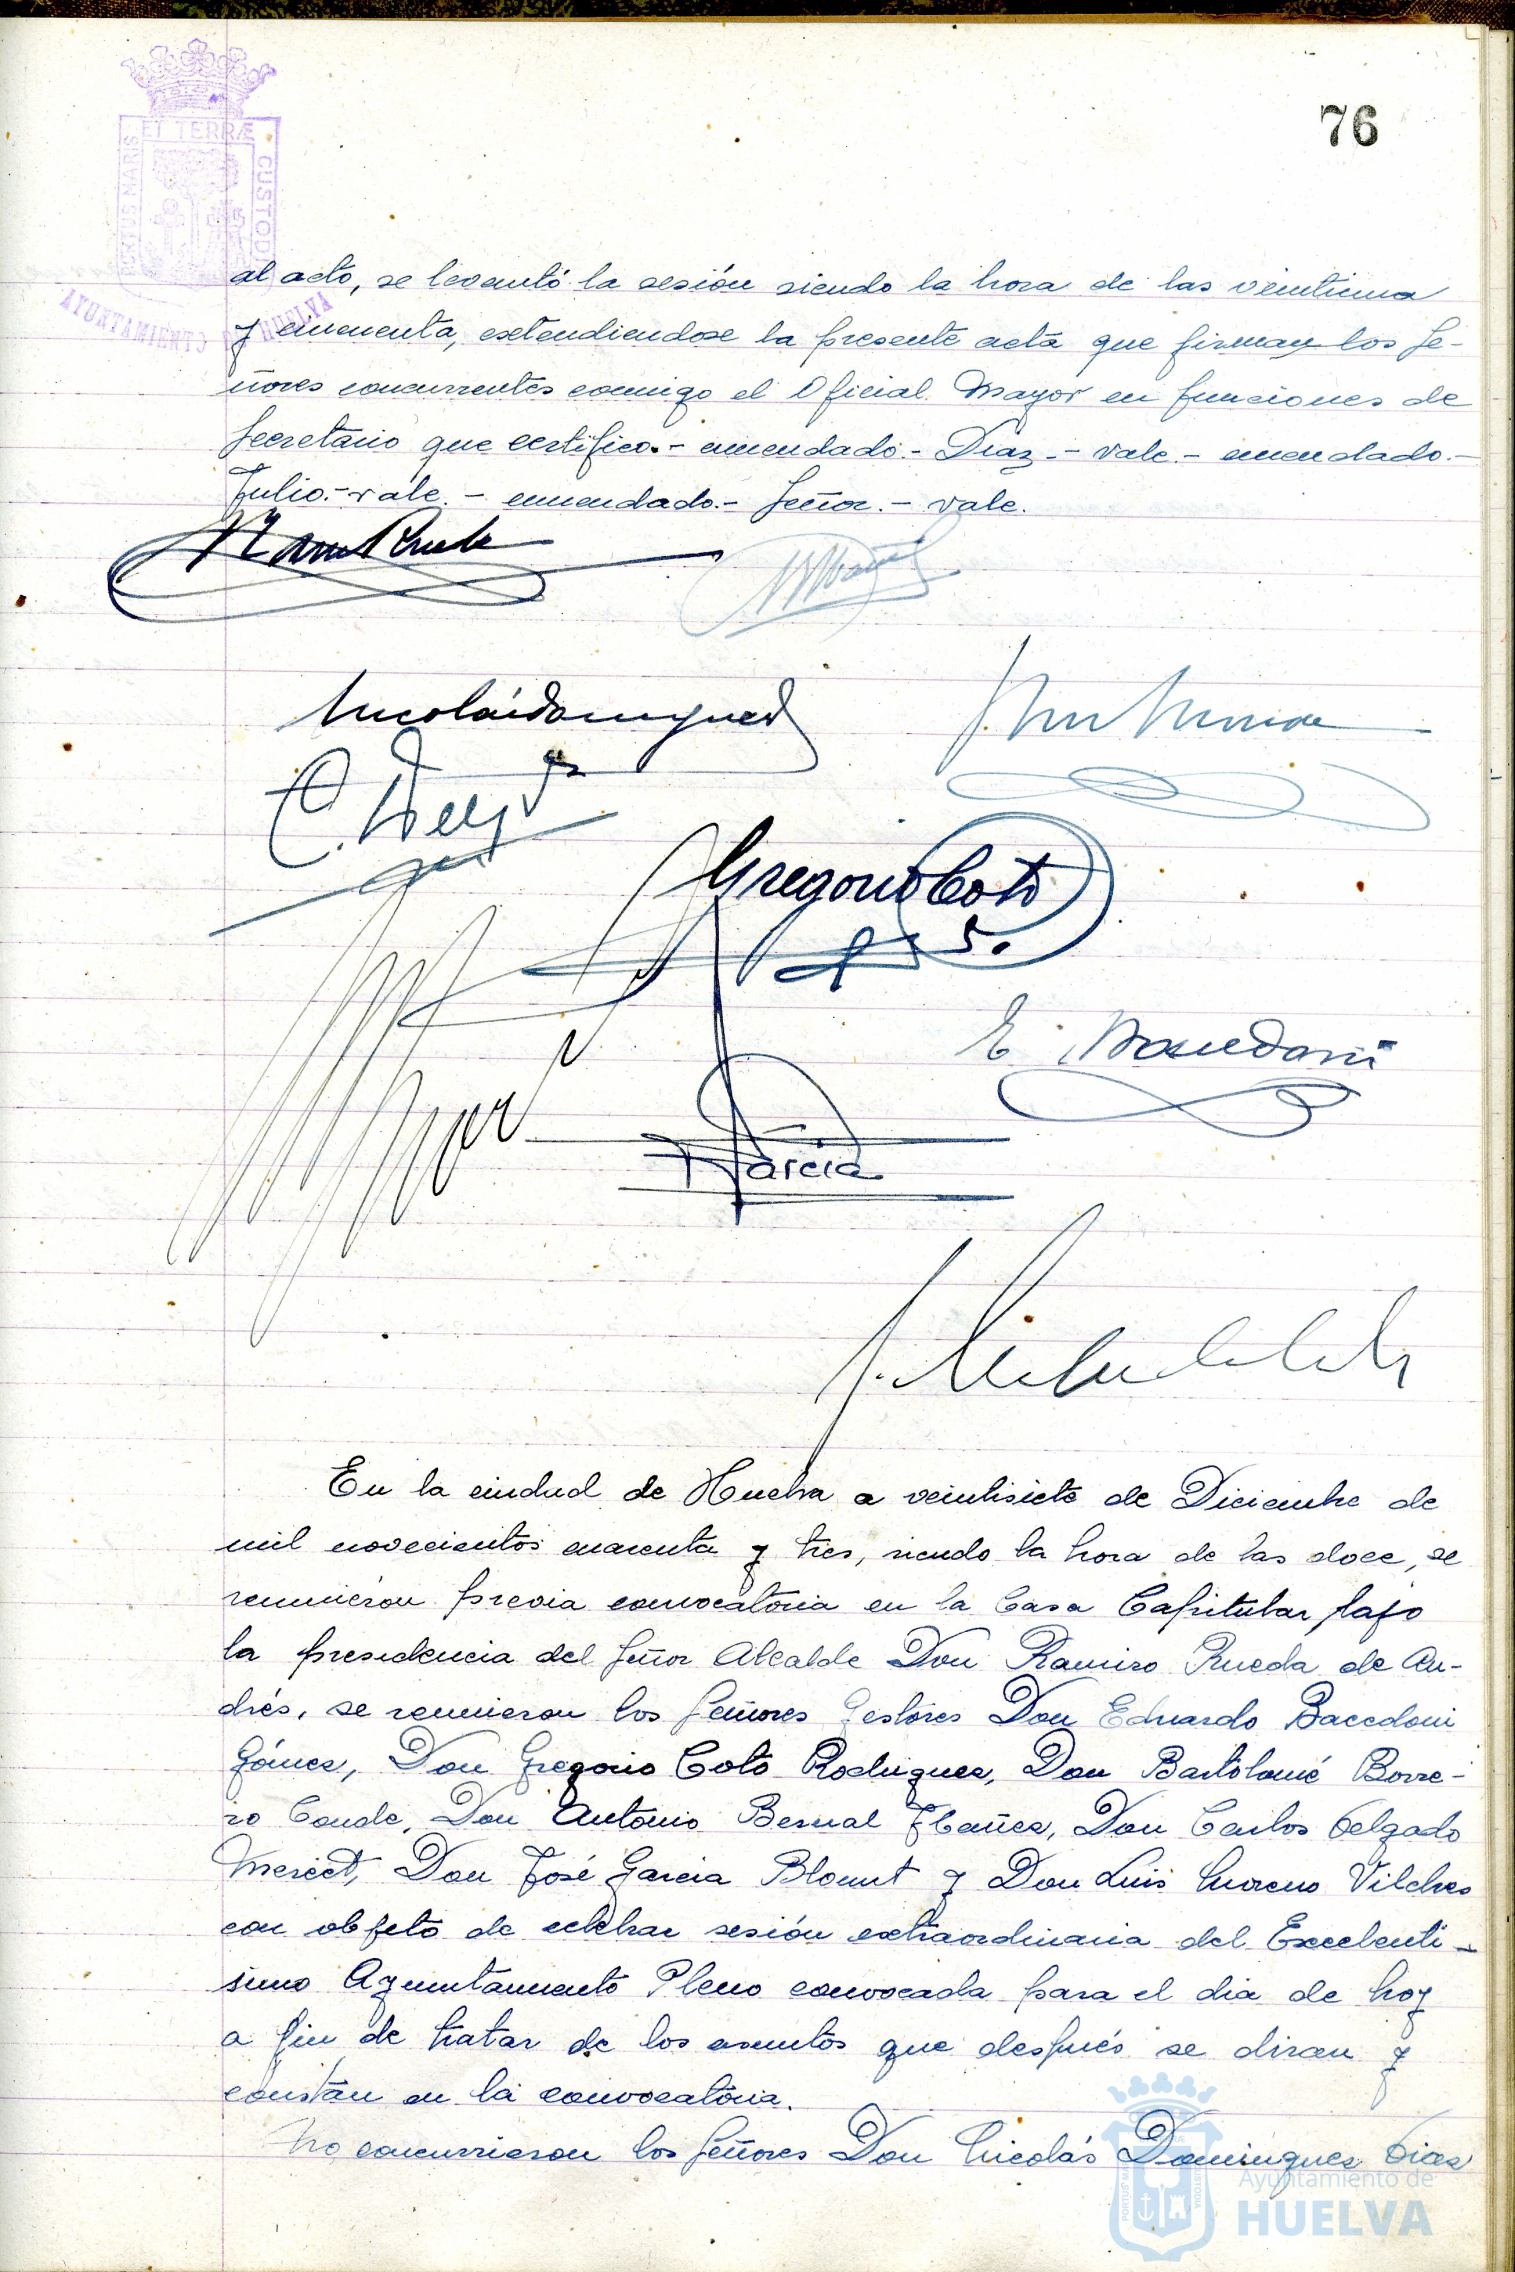 76
PORTUS MARIS
ET TERRÆ
CUSTODIA
AYUNTAMIENTO DE HUELVA
al acto, se levantó la sesión siendo la hora de las veintiuna
y cincuenta, extendiendose la presente acta que firman los Se-
ñores concurrentes conmigo el Oficial Mayor en funciones de
Secretario que certifico.- enmendado.- Diaz.- vale.- enmendado.-
Julio.- vale.- enmendado.- Señor.- vale.
Nicolás Dominguez
Gregorio Coto
E. Bacedoni
Garcia
En la ciudad de Huelva a veintisiete de Diciembre de
mil novecientos cuarenta y tres, siendo la hora de las doce, se
reunieron previa convocatoria en la Casa Capitular bajo
la presidencia del Señor Alcalde Don Ramiro Rueda de An-
drés, se reunieron los Señores Gestores Don Eduardo Bacedoni
Gómez, Don Gregorio Coto Rodriguez, Don Bartolomé Borre-
ro Conde, Don Antonio Bernal Ibañez, Don Carlos Delgado
Merect, Don José Garcia Blount y Don Luis Moreno Vilches
con objeto de celebrar sesión extraordinaria del Excelenti-
simo Ayuntamiento Pleno convocada para el dia de hoy
a fin de tratar de los asuntos que después se diran y
constan en la convocatoria.
No concurrieron los Señores Don Nicolás Dominguez Diaz
Ayuntamiento de
HUELVA